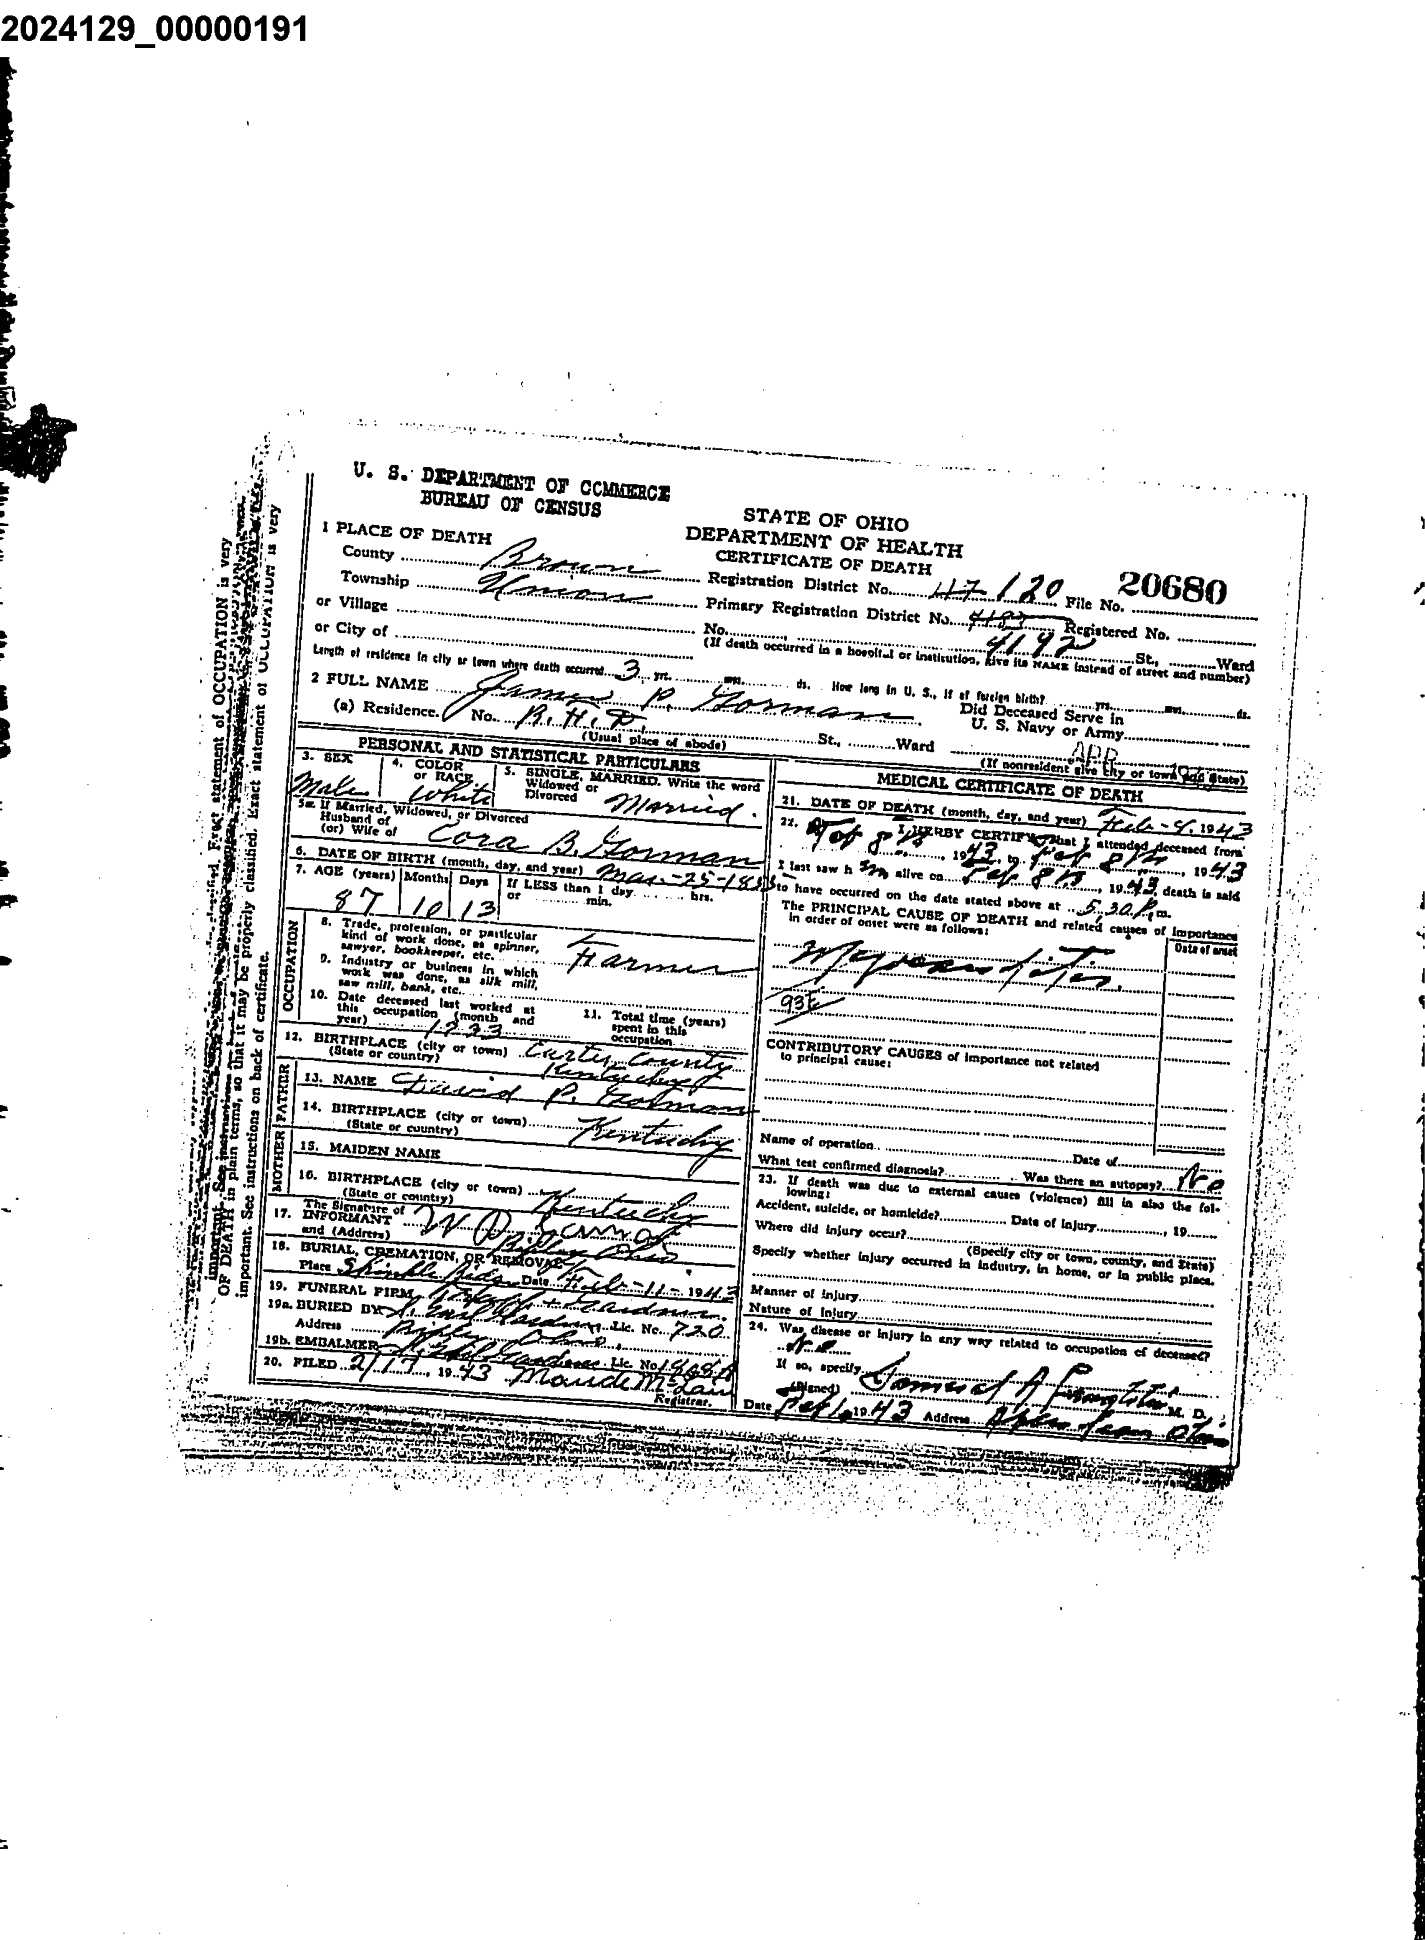 2024129_00000191
U. S. DEPARTMENT OF COMMERCE
BUREAU OF CENSUS
STATE OF OHIO
DEPARTMENT OF HEALTH
CERTIFICATE OF DEATH
1 PLACE OF DEATH
County Brown
Registration District No. 117 120 File No. 20680
Township Union
Primary Registration District No. 4183 Registered No.
or Village
4192
No. St., Ward
or City of
(If death occurred in a hospital or institution, give its NAME instead of street and number)
Length of residence in city or town where death occurred 3 yrs. mos. ds. How long in U. S., if of foreign birth? yrs. mos. ds.
2 FULL NAME James P. Gorman
Did Deceased Serve in
U. S. Navy or Army
(a) Residence. No. R. F. D. St., Ward
(Usual place of abode)
(If nonresident give city or town and State)
PERSONAL AND STATISTICAL PARTICULARS
3. SEX
Male
4. COLOR
or RACE
White
5. SINGLE, MARRIED. Write the word
Widowed or
Divorced
Married.
5a. If Married, Widowed, or Divorced
Husband of
(or) Wife of
Cora B. Gorman
6. DATE OF BIRTH (month, day, and year) Mar.-25-1855
7. AGE (years) Months Days If LESS than 1 day hrs.
or min.
87 10 13
OCCUPATION
8. Trade, profession, or particular
kind of work done, as spinner,
sawyer, bookkeeper, etc.
Farmer
9. Industry or business in which
work was done, as silk mill,
saw mill, bank, etc.
10. Date deceased last worked at
this occupation (month and
year) 1933
11. Total time (years)
spent in this
occupation
12. BIRTHPLACE (city or town) Carter County
(State or country) Kentucky
FATHER
13. NAME David P. Gorman
14. BIRTHPLACE (city or town)
(State or country) Kentucky
MOTHER
15. MAIDEN NAME
16. BIRTHPLACE (city or town)
(State or country) Kentucky
17. The Signature of
INFORMANT
and (Address) Ripley Ohio
18. BURIAL, CREMATION, OR REMOVAL
Place Shinkle Ridge Date Feb-11- 1943
19. FUNERAL FIRM
19a. BURIED BY Lic. No. 720
Address Ripley Ohio,
19b. EMBALMER Lic. No.
20. FILED 2/17, 1943 Maude McLain
Registrar.
MEDICAL CERTIFICATE OF DEATH
21. DATE OF DEATH (month, day, and year) Feb-8, 1943
22. I HEREBY CERTIFY, That I attended deceased from
Feb 8th, 1943, to Feb 8th, 1943
I last saw him alive on Feb 8th, 1943, death is said
to have occurred on the date stated above at 5.30 P.m.
The PRINCIPAL CAUSE OF DEATH and related causes of importance
in order of onset were as follows:
Date of onset
Myocarditis.
93
CONTRIBUTORY CAUSES of importance not related
to principal cause:
Name of operation Date of
What test confirmed diagnosis? Was there an autopsy? No
23. If death was due to external causes (violence) fill in also the following:
Accident, suicide, or homicide? Date of injury, 19
Where did injury occur?
(Specify city or town, county, and State)
Specify whether injury occurred in industry, in home, or in public place.
Manner of injury
Nature of injury
24. Was disease or injury in any way related to occupation of deceased?
No
If so, specify
(Signed) Samuel A M. D.
Date Feb 1943 Address Ohio
OF DEATH in plain terms, so that it may be properly classified. Exact statement of OCCUPATION is very
important. See instructions on back of certificate.